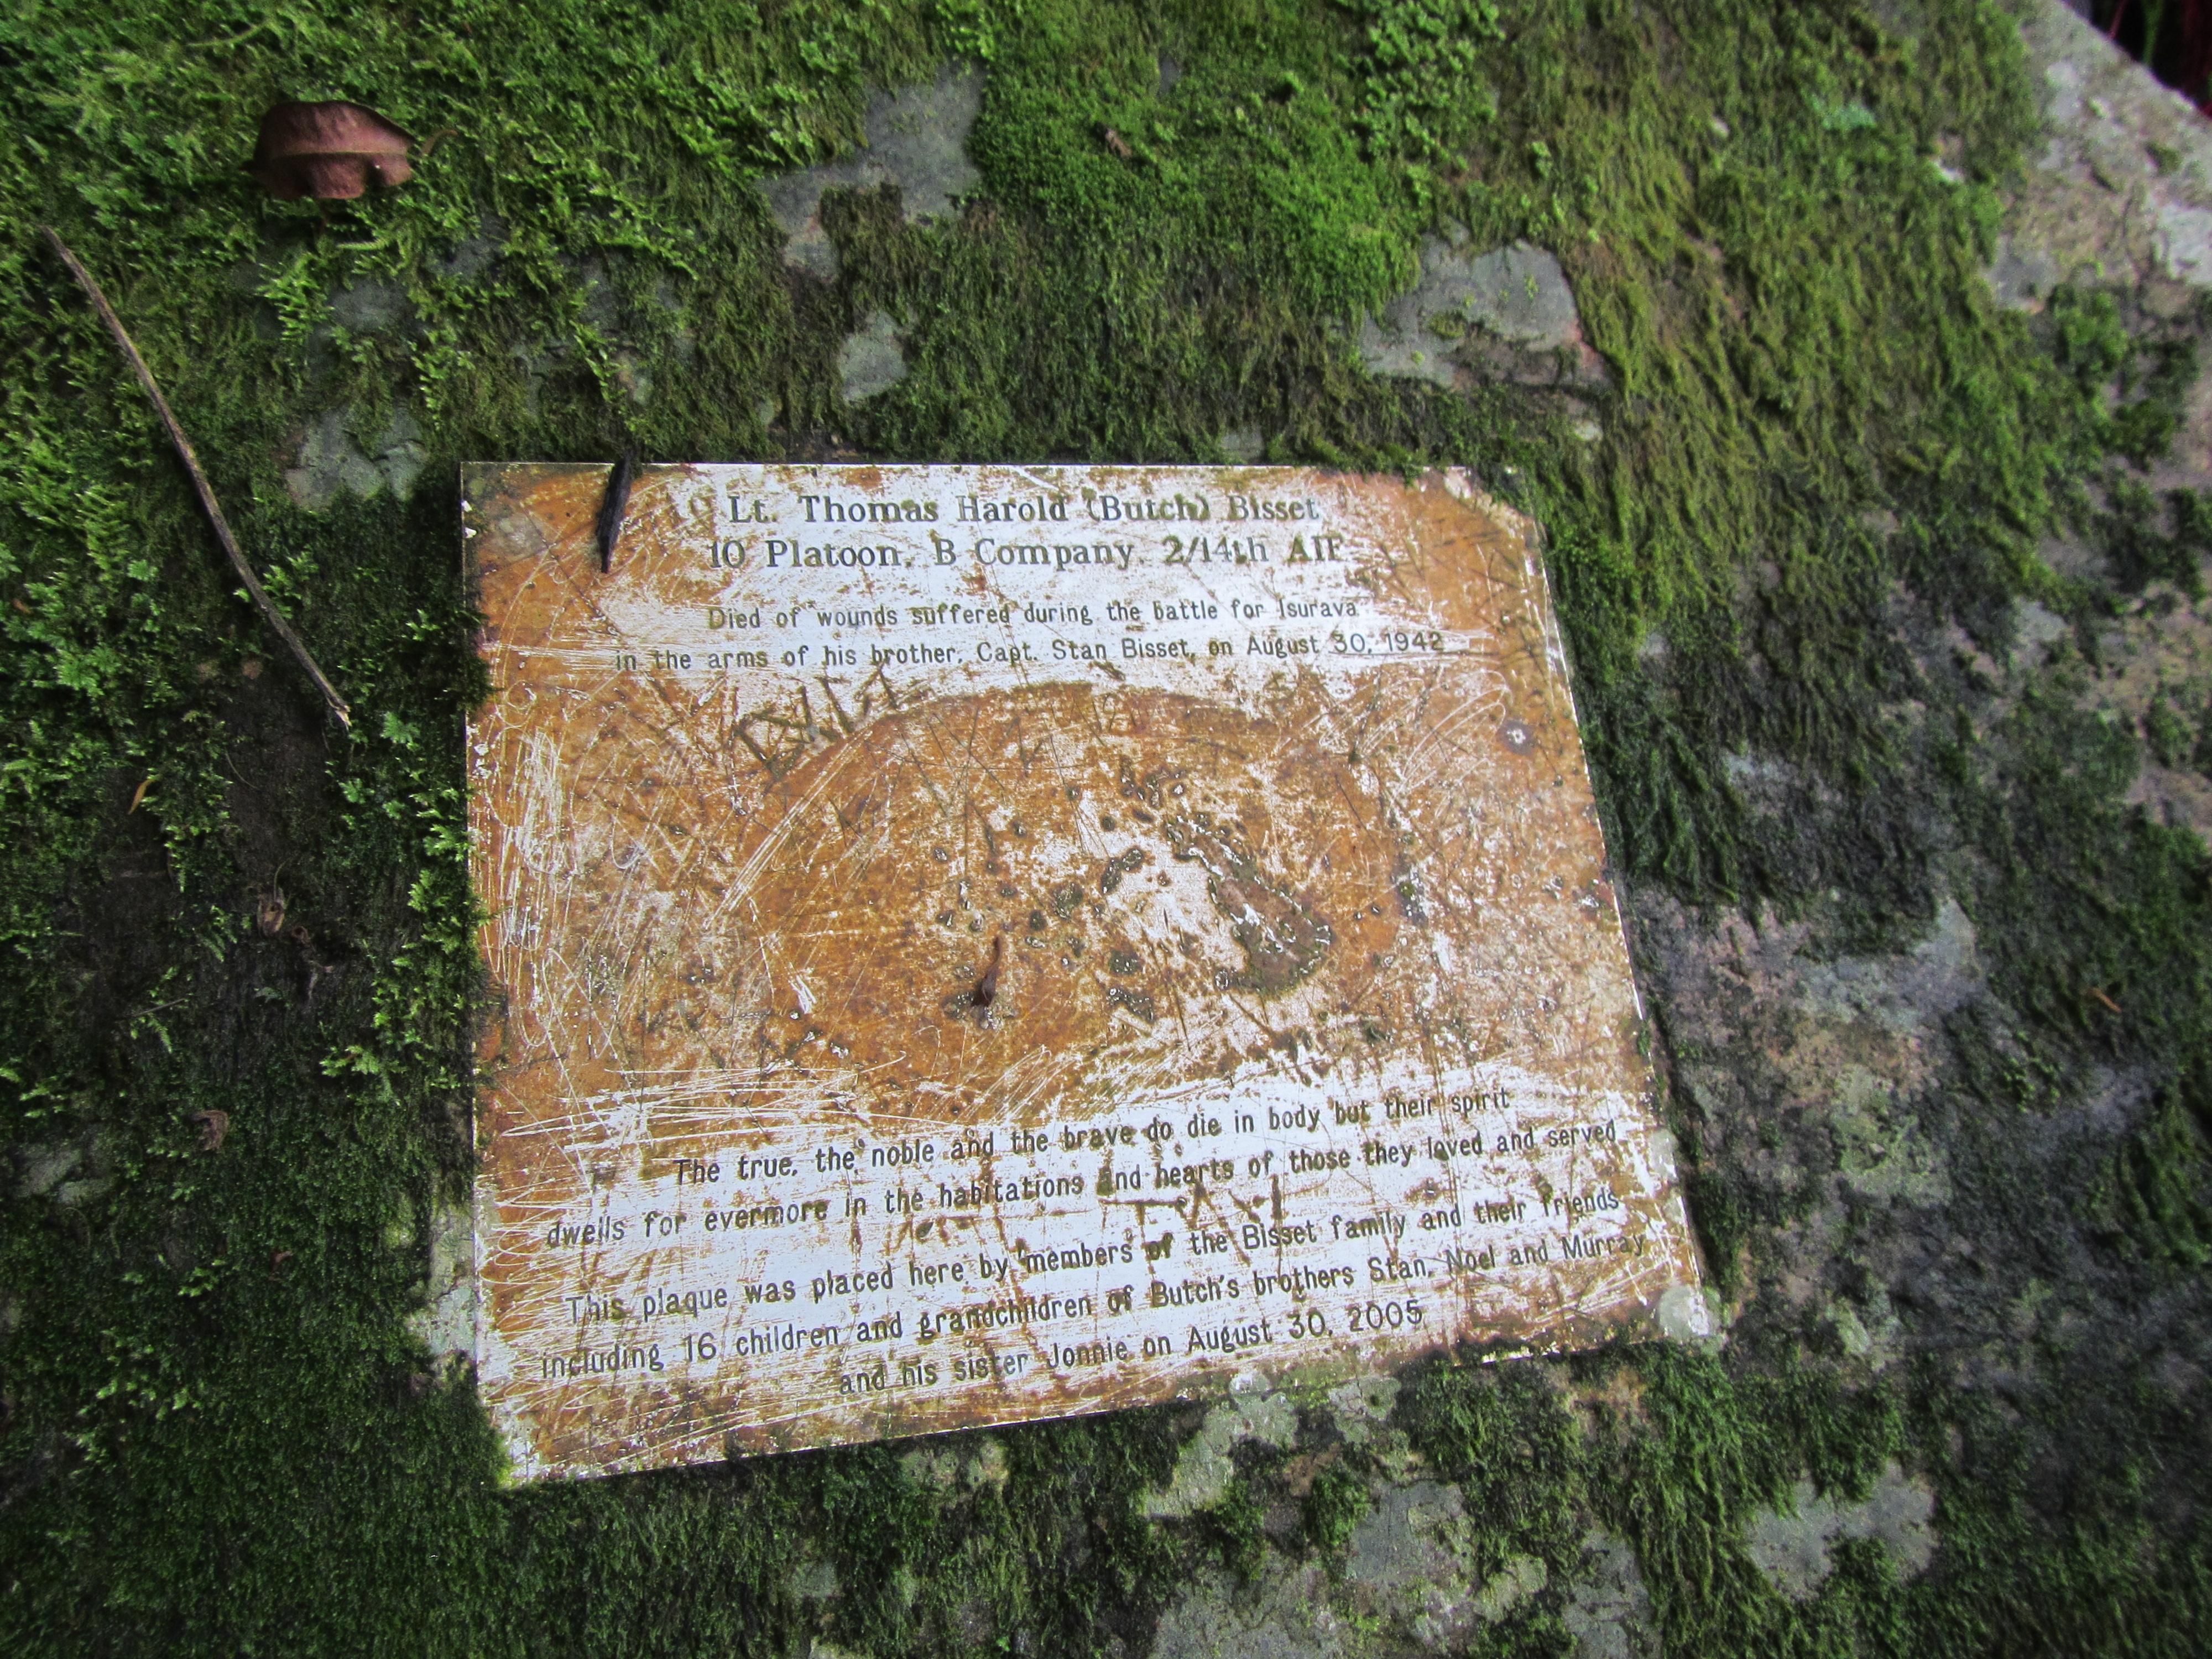 Lt. Thomas Harold (Butch) Bisset
10 Platoon, B Company, 2/14th AIF
Died of wounds suffered during the battle for Isurava
in the arms of his brother, Capt. Stan Bisset, on August 30, 1942
The true, the noble and the brave do die in body but their spirit
dwells for evermore in the habitations and hearts of those they loved and served
This plaque was placed here by members of the Bisset family and their friends
including 16 children and grandchildren of Butch's brothers Stan, Noel and Murray
and his sister Jonnie on August 30, 2005